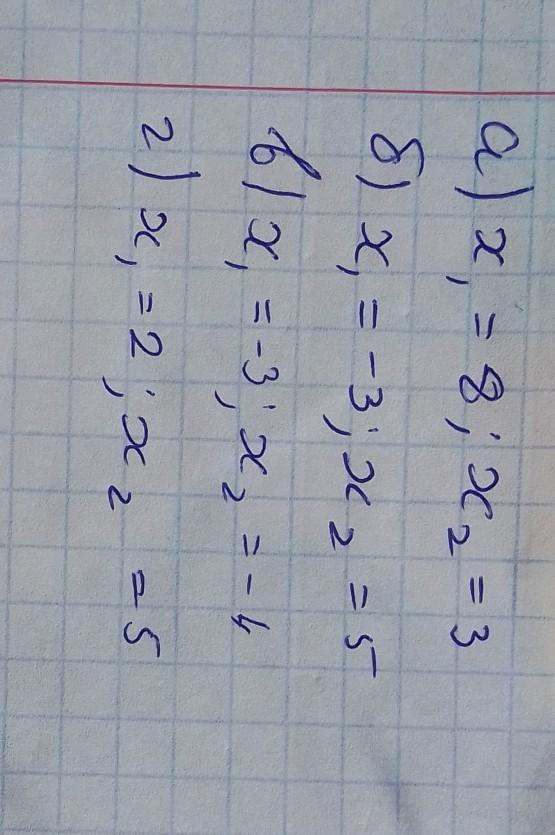 а) x₁ = 8; x₂ = 3
б) x₁ = -3; x₂ = 5
в) x₁ = -3; x₂ = -4
г) x₁ = 2; x₂ = 5